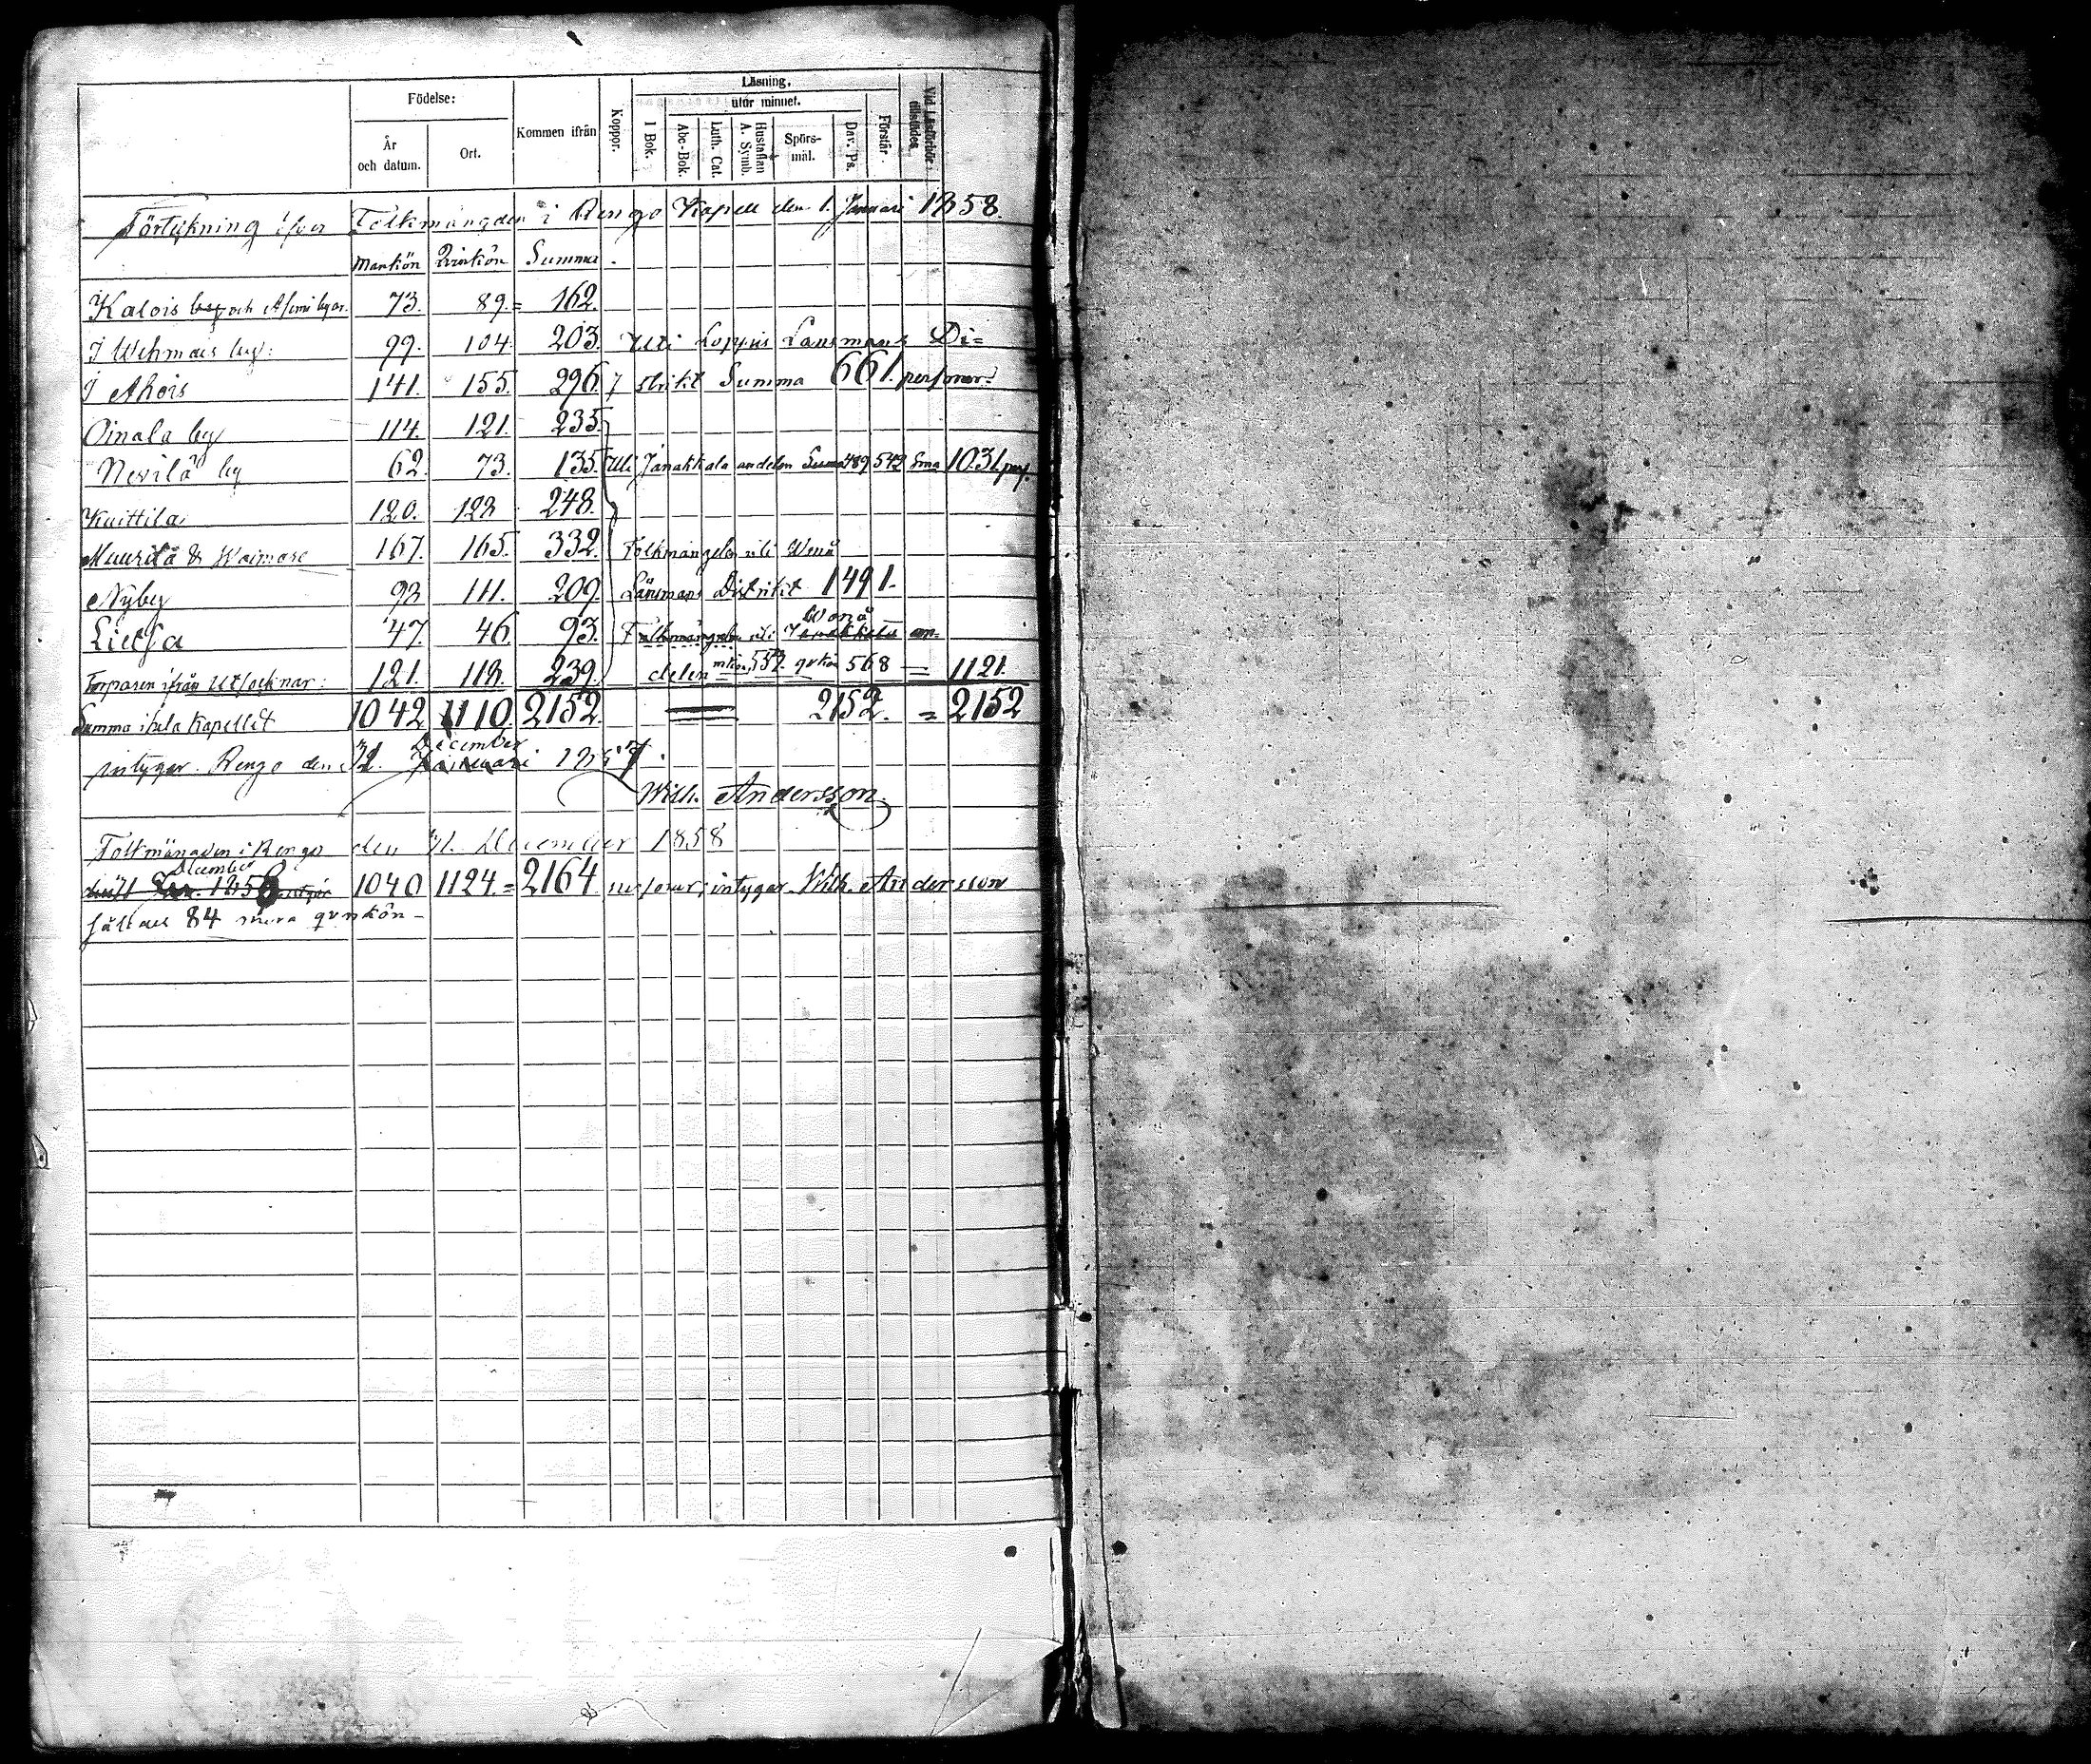 Läsning.
Födelse:
utur minnet.
År och datum.
Ort.
Kommen ifrån
Koppor.
I Bok.
Abc-Bok.
Luth. Cat.
Hustaflan A. Symb.
Spörs-mål.
Dav. Ps.
Förstår.
Vid Läsförhör tillstädes.
Förteckning öfver Folkmängden i Rengo Kapell den 1. Januari 1858.
Mankön Qvinkön Summa.
Kalois by och Asemi byar. 73. 89. = 162.
I Wehmais by: 99. 104. 203. Uti Loppis Länsmans Di=
I Ahois 141. 155. 296. strikt Summa 661. personer.
Oinala by 114. 121. 235.
Nevilä by 62. 73. 135. Uti Janakkala andelen Summa 489 542 Sma 1031 pers.
Kuittila 120. 128 248.
Muurila & Waimare 167. 165. 332. Folkmängden uti Wonå
Nyby 98 111. 209. Länsmans Distrikt 1491.
Lietsa 47. 46 93. Folkmängden uti Janakkala Wonå an-
Torparen ifrån Utsocknar: 121. 118. 239. delen mkön 553. qvkön 568 = 1121.
Summa i hela Kapellet 1042 1110. 2152. 2152. = 2152
intygar. Rengo den 31. Januari December 1857.
Wilh. Andersson
Folkmängden i Rengo den 31. December 1858
1858 December 1040 1124. = 2164 personer; intygar Wilh. Andersson
således 84 mera qvinkön -